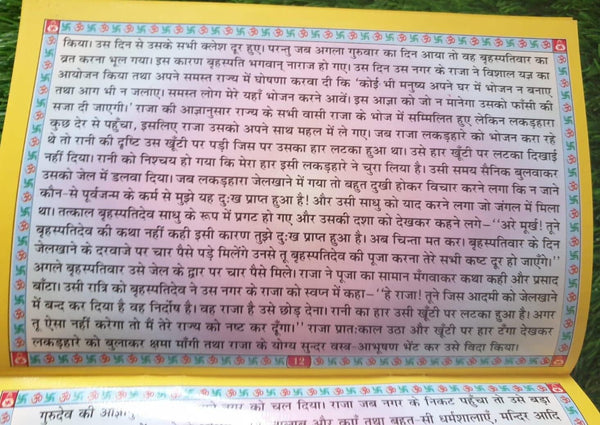 किया। उस दिन से उसके सभी क्लेश दूर हुए। परन्तु जब अगला गुरुवार का दिन आया तो वह बृहस्पतिवार का
व्रत करना भूल गया। इस कारण बृहस्पति भगवान् नाराज हो गए। उस दिन उस नगर के राजा ने विशाल यज्ञ का
आयोजन किया तथा अपने समस्त राज्य में घोषणा करवा दी कि 'कोई भी मनुष्य अपने घर में भोजन न बनाए
तथा आग भी न जलाए। समस्त लोग मेरे यहाँ भोजन करने आवें। इस आज्ञा को जो न मानेगा उसको फाँसी की
सजा दी जाएगी।' राजा की आज्ञानुसार राज्य के सभी वासी राजा के भोज में सम्मिलित हुए लेकिन लकड़हारा
कुछ देर से पहुँचा, इसलिए राजा उसको अपने साथ महल में ले गए। जब राजा लकड़हारे को भोजन करा रहे
थे तो रानी की दृष्टि उस खूँटी पर पड़ी जिस पर उसका हार लटका हुआ था। उसे हार खूँटी पर लटका दिखाई
नहीं दिया। रानी को निश्चय हो गया कि मेरा हार इसी लकड़हारे ने चुरा लिया है। उसी समय सैनिक बुलवाकर
उसको जेल में डलवा दिया। जब लकड़हारा जेलखाने में गया तो बहुत दुखी होकर विचार करने लगा कि न जाने
कौन-से पूर्वजन्म के कर्म से मुझे यह दुःख प्राप्त हुआ है! और उसी साधु को याद करने लगा जो जंगल में मिला
था। तत्काल बृहस्पतिदेव साधु के रूप में प्रगट हो गए और उसकी दशा को देखकर कहने लगे–"अरे मूर्ख! तूने
बृहस्पतिदेव की कथा नहीं कही इसी कारण तुझे दुःख प्राप्त हुआ है। अब चिन्ता मत कर। बृहस्पतिवार के दिन
जेलखाने के दरवाजे पर चार पैसे पड़े मिलेंगे उनसे तू बृहस्पतिदेव की पूजा करना तेरे सभी कष्ट दूर हो जाएँगे।"
अगले बृहस्पतिवार उसे जेल के द्वार पर चार पैसे मिले। राजा ने पूजा का सामान मँगवाकर कथा कही और प्रसाद
बाँटा। उसी रात्रि को बृहस्पतिदेव ने उस नगर के राजा को स्वप्न में कहा–"हे राजा! तूने जिस आदमी को जेलखाने
में बन्द कर दिया है वह निर्दोष है। वह राजा है उसे छोड़ देना। रानी का हार उसी खूँटी पर लटका हुआ है। अगर
तू ऐसा नहीं करेगा तो मैं तेरे राज्य को नष्ट कर दूँगा।" राजा प्रातःकाल उठा और खूँटी पर हार टँगा देखकर
लकड़हारे को बुलाकर क्षमा माँगी तथा राजा के योग्य सुन्दर वस्त्र-आभूषण भेंट कर उसे विदा किया।
12
गुरुदेव की नगर को चल दिया। राजा जब नगर के निकट पहुँचा तो उसे बड़ा
और कुएँ तथा बहुत-सी धर्मशालाएँ, मन्दिर आदि